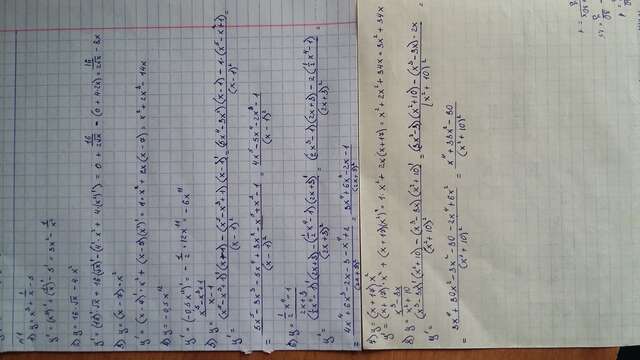 №1
1) y = x³ + 1/x - 5
y' = (x³)' + (1/x)' - 5' = 3x² - 1/x²
2) y = 16·√x - 4·x²
y' = (16)'·√x + 16(√x)' - (4'·x² + 4·(x²)') = 0 + 16/2√x - (0 + 4·2x) = 16/2√x - 8x
3) y = (x - 7)·x²
y' = (x - 7)'·x² + (x - 7)(x²)' = 1·x² + 2x(x - 7) = x² + 2x² - 14x
4) y = -0,5x¹²
y' = (-0,5x¹²)' = -1/2·12x¹¹ = -6x¹¹
5) y = (x⁵ - x³ + 1)/(x - 1)
y' = ((x⁵ - x³ + 1)'(x - 1) - (x⁵ - x³ + 1)(x - 1)')/(x - 1)² = ((5x⁴ - 3x²)(x - 1) - 1·(x⁵ - x³ + 1))/(x - 1)² =
= (5x⁵ - 3x³ - 5x⁴ + 3x² - x⁵ + x³ - 1)/(x - 1)² = (4x⁵ - 5x⁴ - 2x³ - 1)/(x - 1)²
6) y = (1/2 x⁴ - 1)/(2x + 3)
y' = ((1/2 x⁴ - 1)'(2x + 3) - (1/2 x⁴ - 1)(2x + 3)')/(2x + 3)² = ((2x³ - 1)(2x + 3) - 2(1/2 x⁴ - 1))/(2x + 3)² =
= (4x⁴ + 6x³ - 2x - 3 - x⁴ + 2)/(2x + 3)² = (3x⁴ + 6x³ - 2x - 1)/(2x + 3)²
7) y = (x + 17) x²
y' = (x + 17)'·x² + (x + 17)(x²)' = 1·x² + 2x(x + 17) = x² + 2x² + 34x = 3x² + 34x
8) y = (x³ - 3x)/(x² + 10)
y' = ((x³ - 3x)'(x² + 10) - (x³ - 3x)(x² + 10)')/(x² + 10)² = ((3x² - 3)(x² + 10) - (x³ - 3x)·2x)/(x² + 10)² =
= (3x⁴ + 30x² - 3x² - 30 - 2x⁴ + 6x²)/(x² + 10)² = (x⁴ + 33x² - 30)/(x² + 10)²